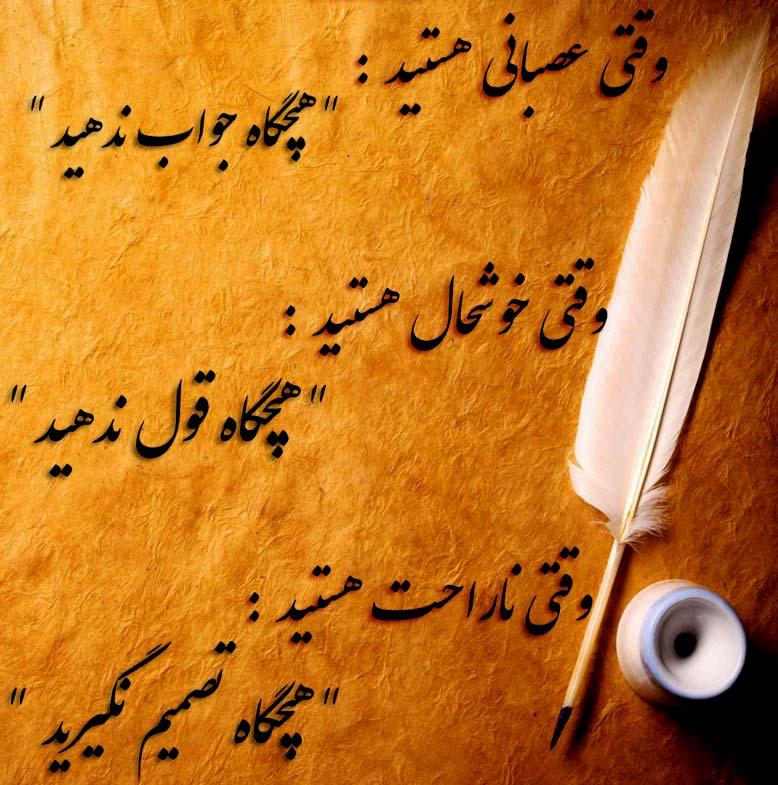 وقتی عصبانی هستید :
"هیچگاه جواب ندهید"
وقتی خوشحال هستید :
"هیچگاه قول ندهید"
وقتی ناراحت هستید :
"هیچگاه تصمیم نگیرید"